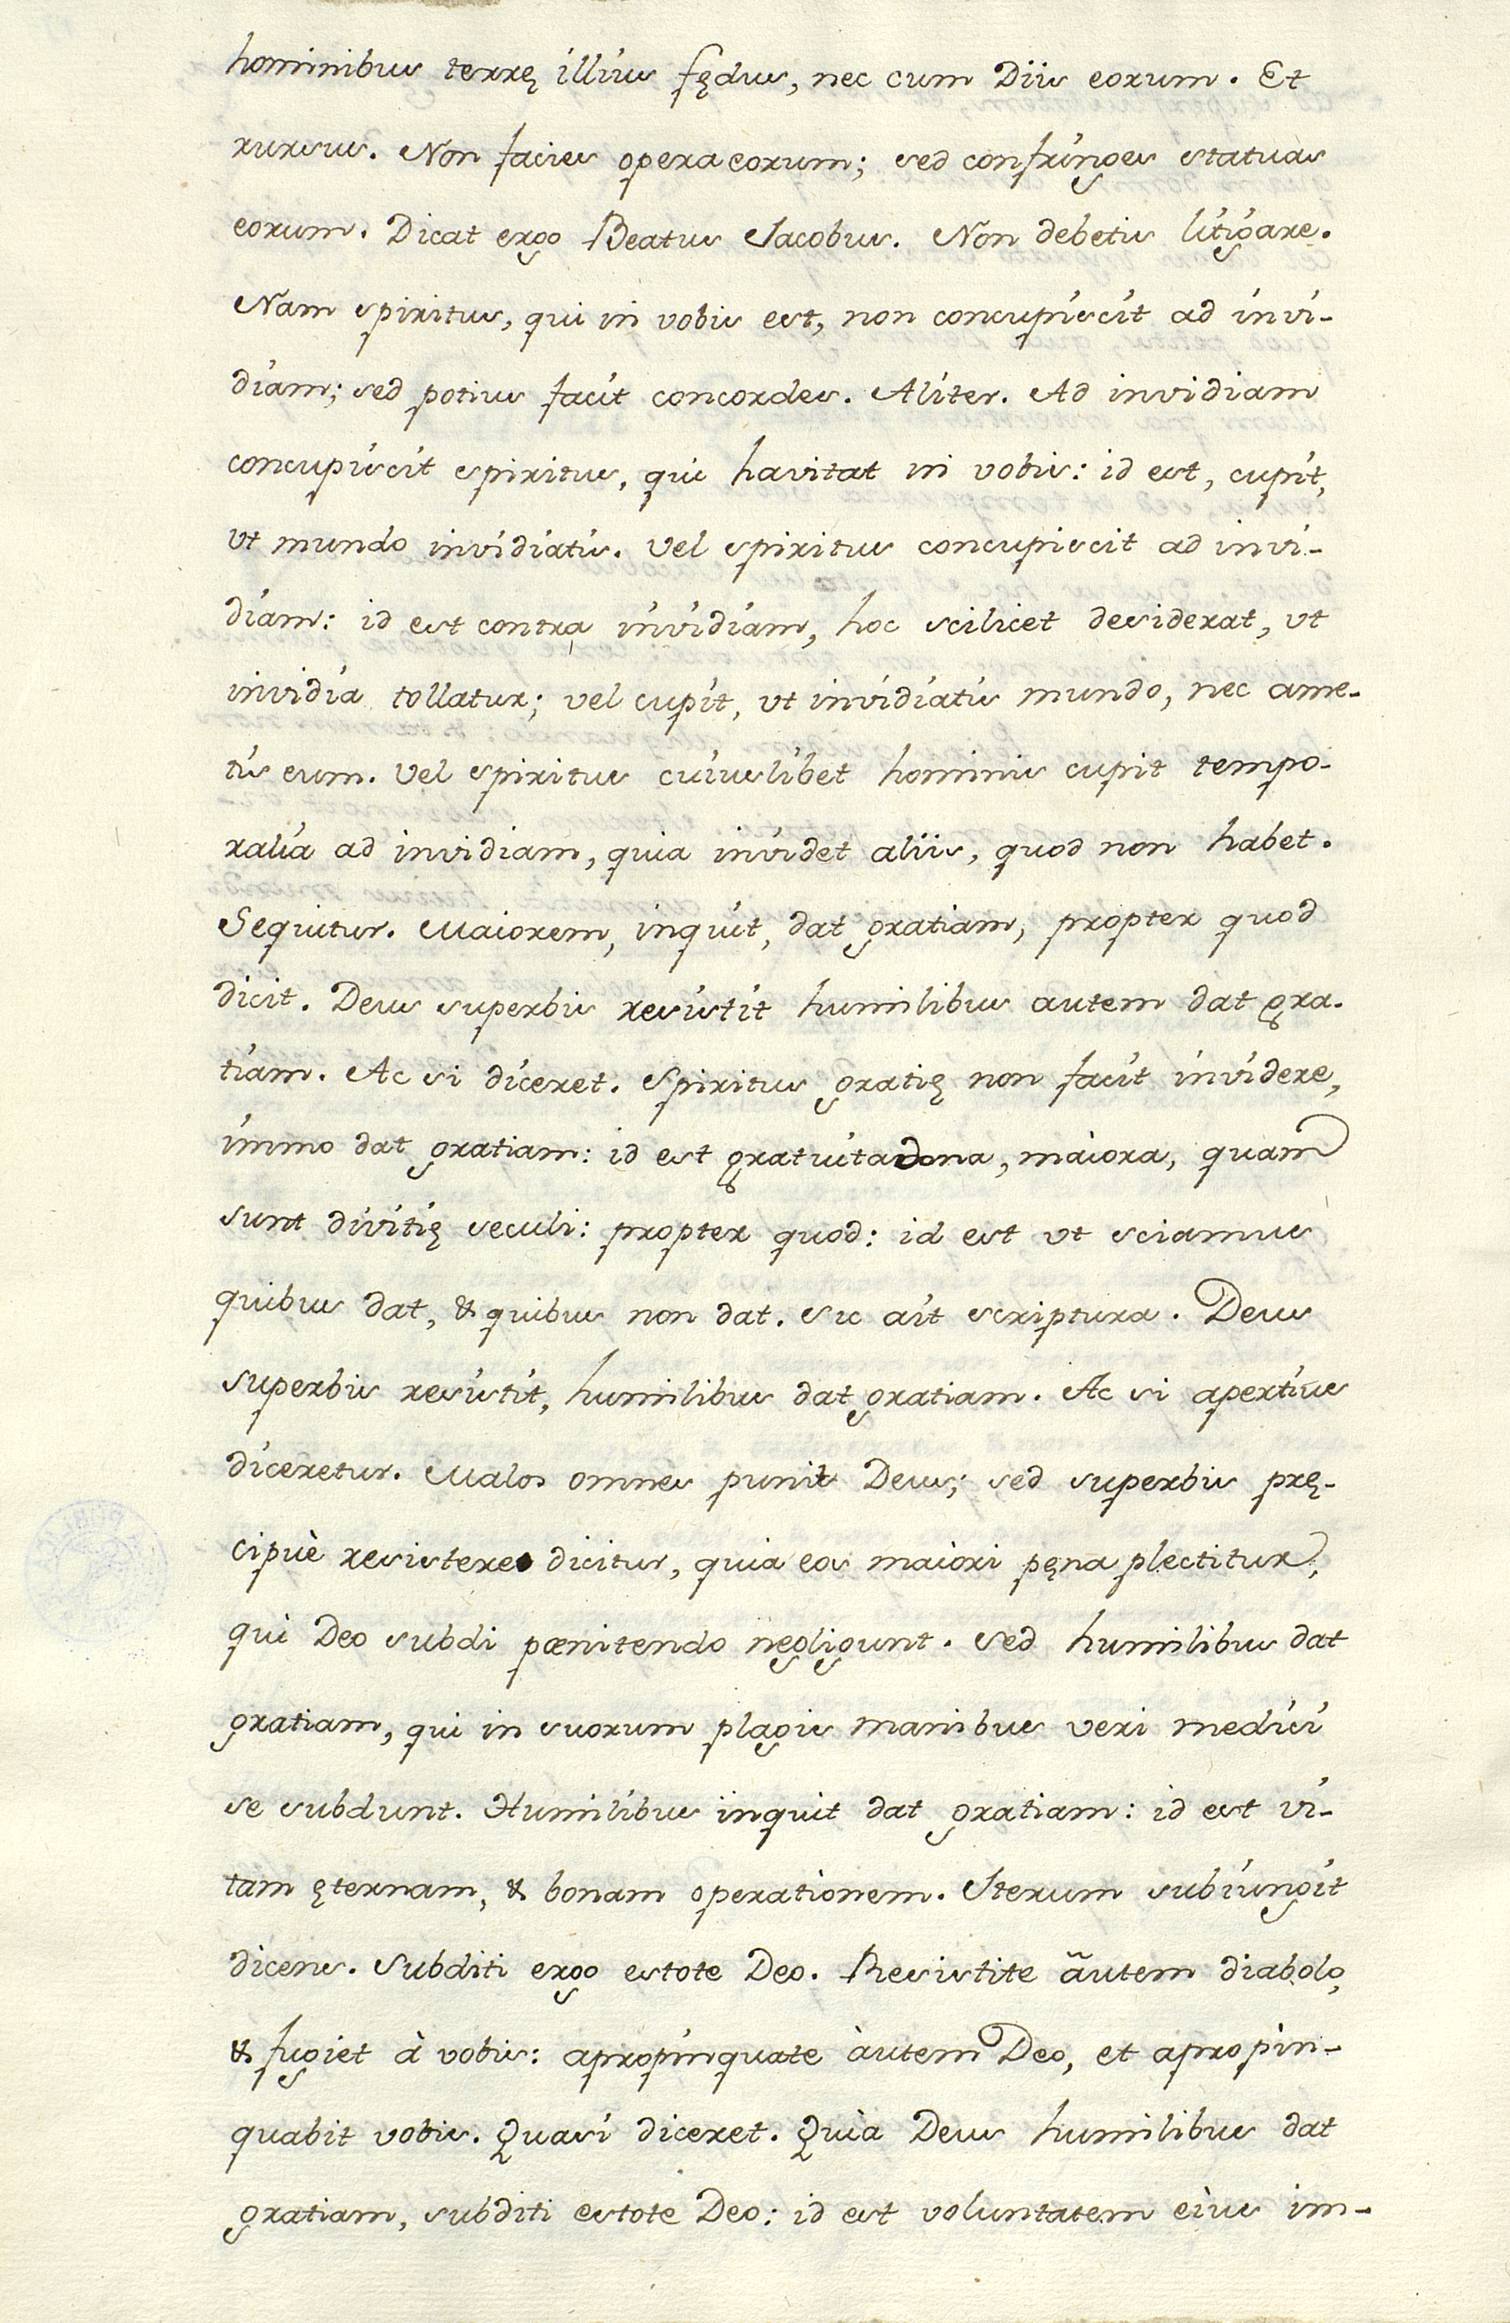 hominibus terrę illius fędus, nec cum Diis eorum. Et
rursus. Non facies opera eorum; sed confringes statuas
eorum. Dicat ergo Beatus Iacobus. Non debetis litigare.
Nam spiritus, qui in vobis est, non concupiscit ad invi-
diam; sed potius facit concordes. Aliter. Ad invidiam
concupiscit spiritus, qui havitat in vobis: id est, cupit,
vt mundo invidiatis. Vel spiritus concupiscit ad invi-
diam: id est contra invidiam, hoc scilicet desiderat, vt
invidia tollatur; vel cupit, vt invidiatis mundo, nec ame-
tis eum. Vel spiritus cuiuslibet hominis cupit tempo-
ralia ad invidiam, quia invidet aliis, quod non habet.
Sequitur. Maiorem, inquit, dat gratiam, propter quod
dicit. Deus superbis resistit humilibus autem dat gra-
tiam. Ac si diceret. Spiritus gratię non facit invidere,
immo dat gratiam: id est gratuita dona, maiora, quam
sunt divitię seculi: propter quod: id est vt sciamus
quibus dat, & quibus non dat. Sic ait scriptura. Deus
superbis resistit, humilibus dat gratiam. Ac si apertius
diceretur. Malos omnes punit Deus; sed superbis prę-
cipuè resistere dicitur, quia eos maiori pęna plectitur,
qui Deo subdi pœnitendo negligunt. Sed humilibus dat
gratiam, qui in suorum plagis manibus veri medici
se subdunt. Humilibus inquit dat gratiam: id est vi-
tam ęternam, & bonam operationem. Iterum subiungit
dicens. Subditi ergo estote Deo. Resistite autem diabolo,
& fugiet à vobis: apropinquate àutem Deo, et apropin-
quabit vobis. Quasi diceret. Quia Deus humilibus dat
gratiam, subditi estote Deo: id est voluntatem eius im-